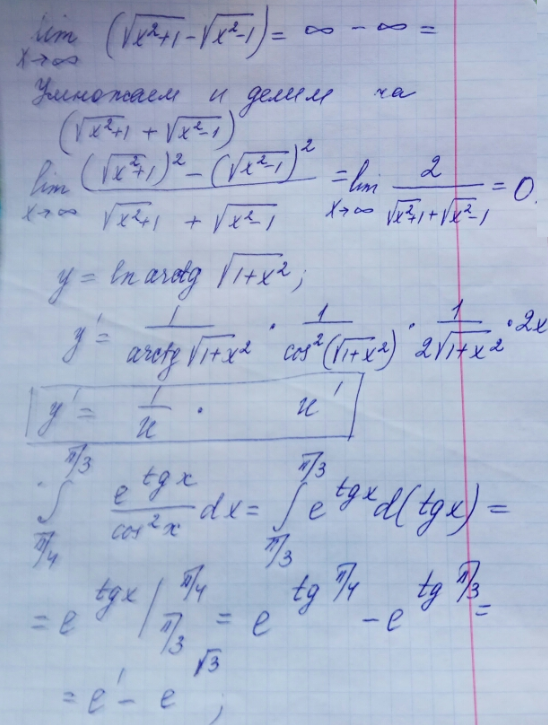 lim x→∞ (√x²+1 - √x²-1) = ∞ - ∞ =
Умножаем и делим на
(√x²+1 + √x²-1)
lim x→∞ (√x²+1)² - (√x²-1)² / √x²+1 + √x²-1 = lim x→∞ 2 / √x²+1 + √x²-1 = 0.
y = ln arctg √1+x²;
y' = 1 / arctg √1+x² · 1 / cos²(√1+x²) · 1 / 2√1+x² · 2x
y' = 1/u · u'
∫ π/4 π/3 e^tgx / cos²x dx = ∫ π/3 π/3 e^tgx d(tgx) =
= e^tgx | π/4 π/3 = e^tg π/4 - e^tg π/3 =
= e¹ - e^√3;